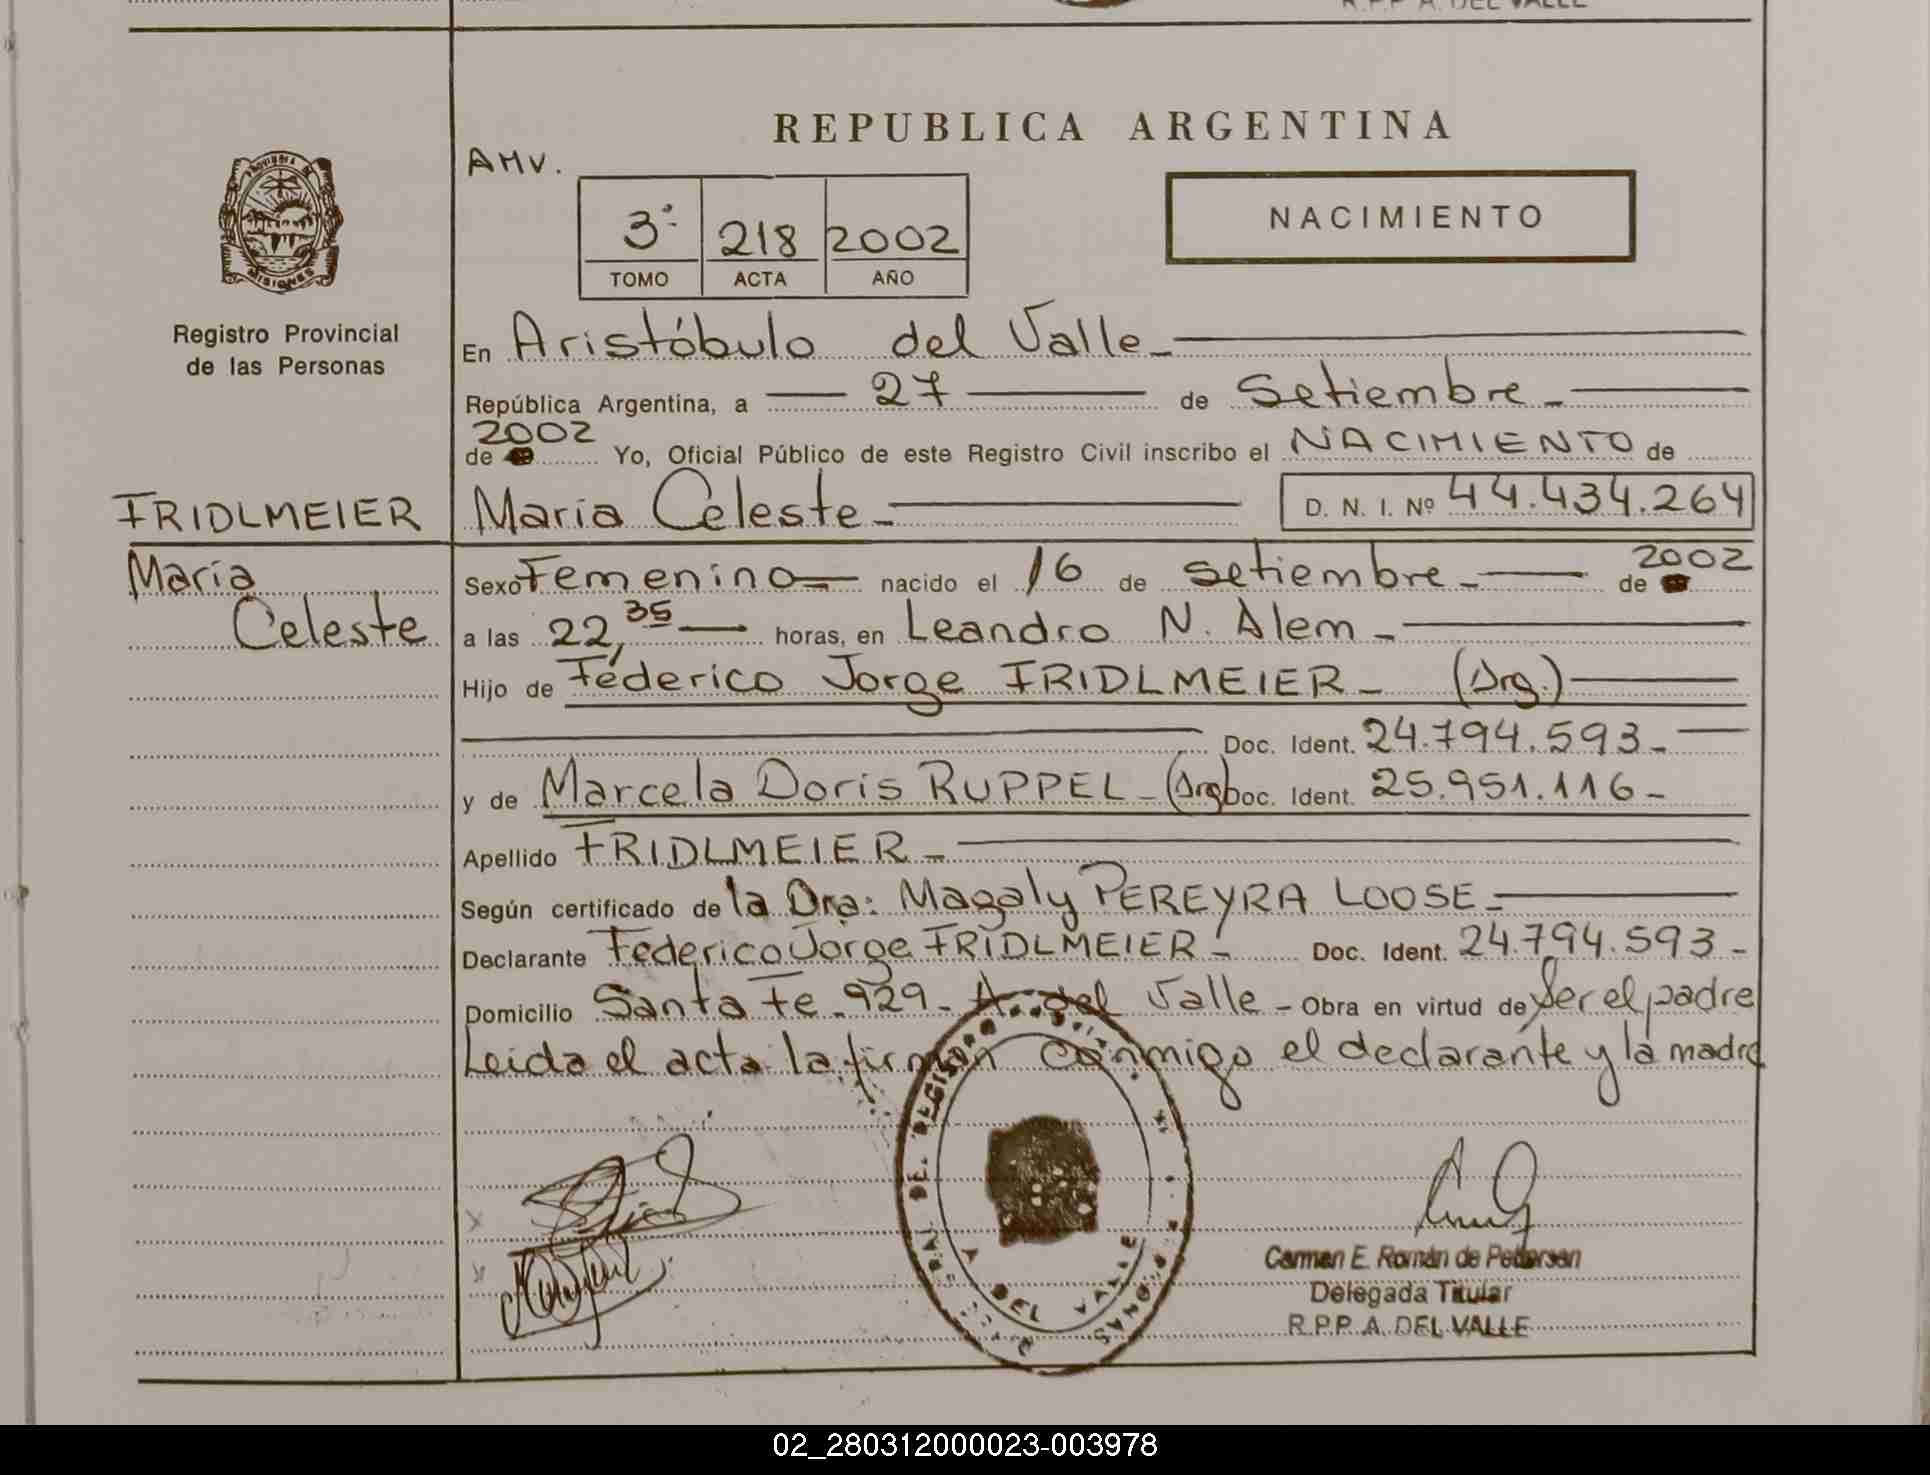 R.P.P A. DEL VALLE
REPUBLICA ARGENTINA
AMV.
NACIMIENTO
3º 218 2002
TOMO ACTA AÑO
PROVINCIA DE MISIONES
Registro Provincial
de las Personas
En Aristóbulo del Valle
República Argentina, a 27 de Setiembre
de 2002 Yo, Oficial Público de este Registro Civil inscribo el NACIMIENTO de
FRIDLMEIER
María
Celeste
María Celeste D. N. I. Nº 44.434.264
Sexo Femenino nacido el 16 de setiembre de 2002
a las 22,35 horas, en Leandro N. Alem
Hijo de Féderico Jorge FRIDLMEIER (Arg.)
Doc. Ident. 24.794.593
y de Marcela Doris RUPPEL (Arg) Doc. Ident. 25.951.116
Apellido FRIDLMEIER
Según certificado de la Dra: Magaly PEREYRA LOOSE
Declarante Federico Jorge FRIDLMEIER Doc. Ident. 24.794.593
Domicilio Santa Fe 929 - A. del Valle - Obra en virtud de ser el padre
Leida el acta la firman conmigo el declarante y la madre
DEL REGISTRO
A DEL VALLE
Carmen E. Román de Pedersen
Delegada Titular
R.P.P. A. DEL VALLE
02_280312000023-003978